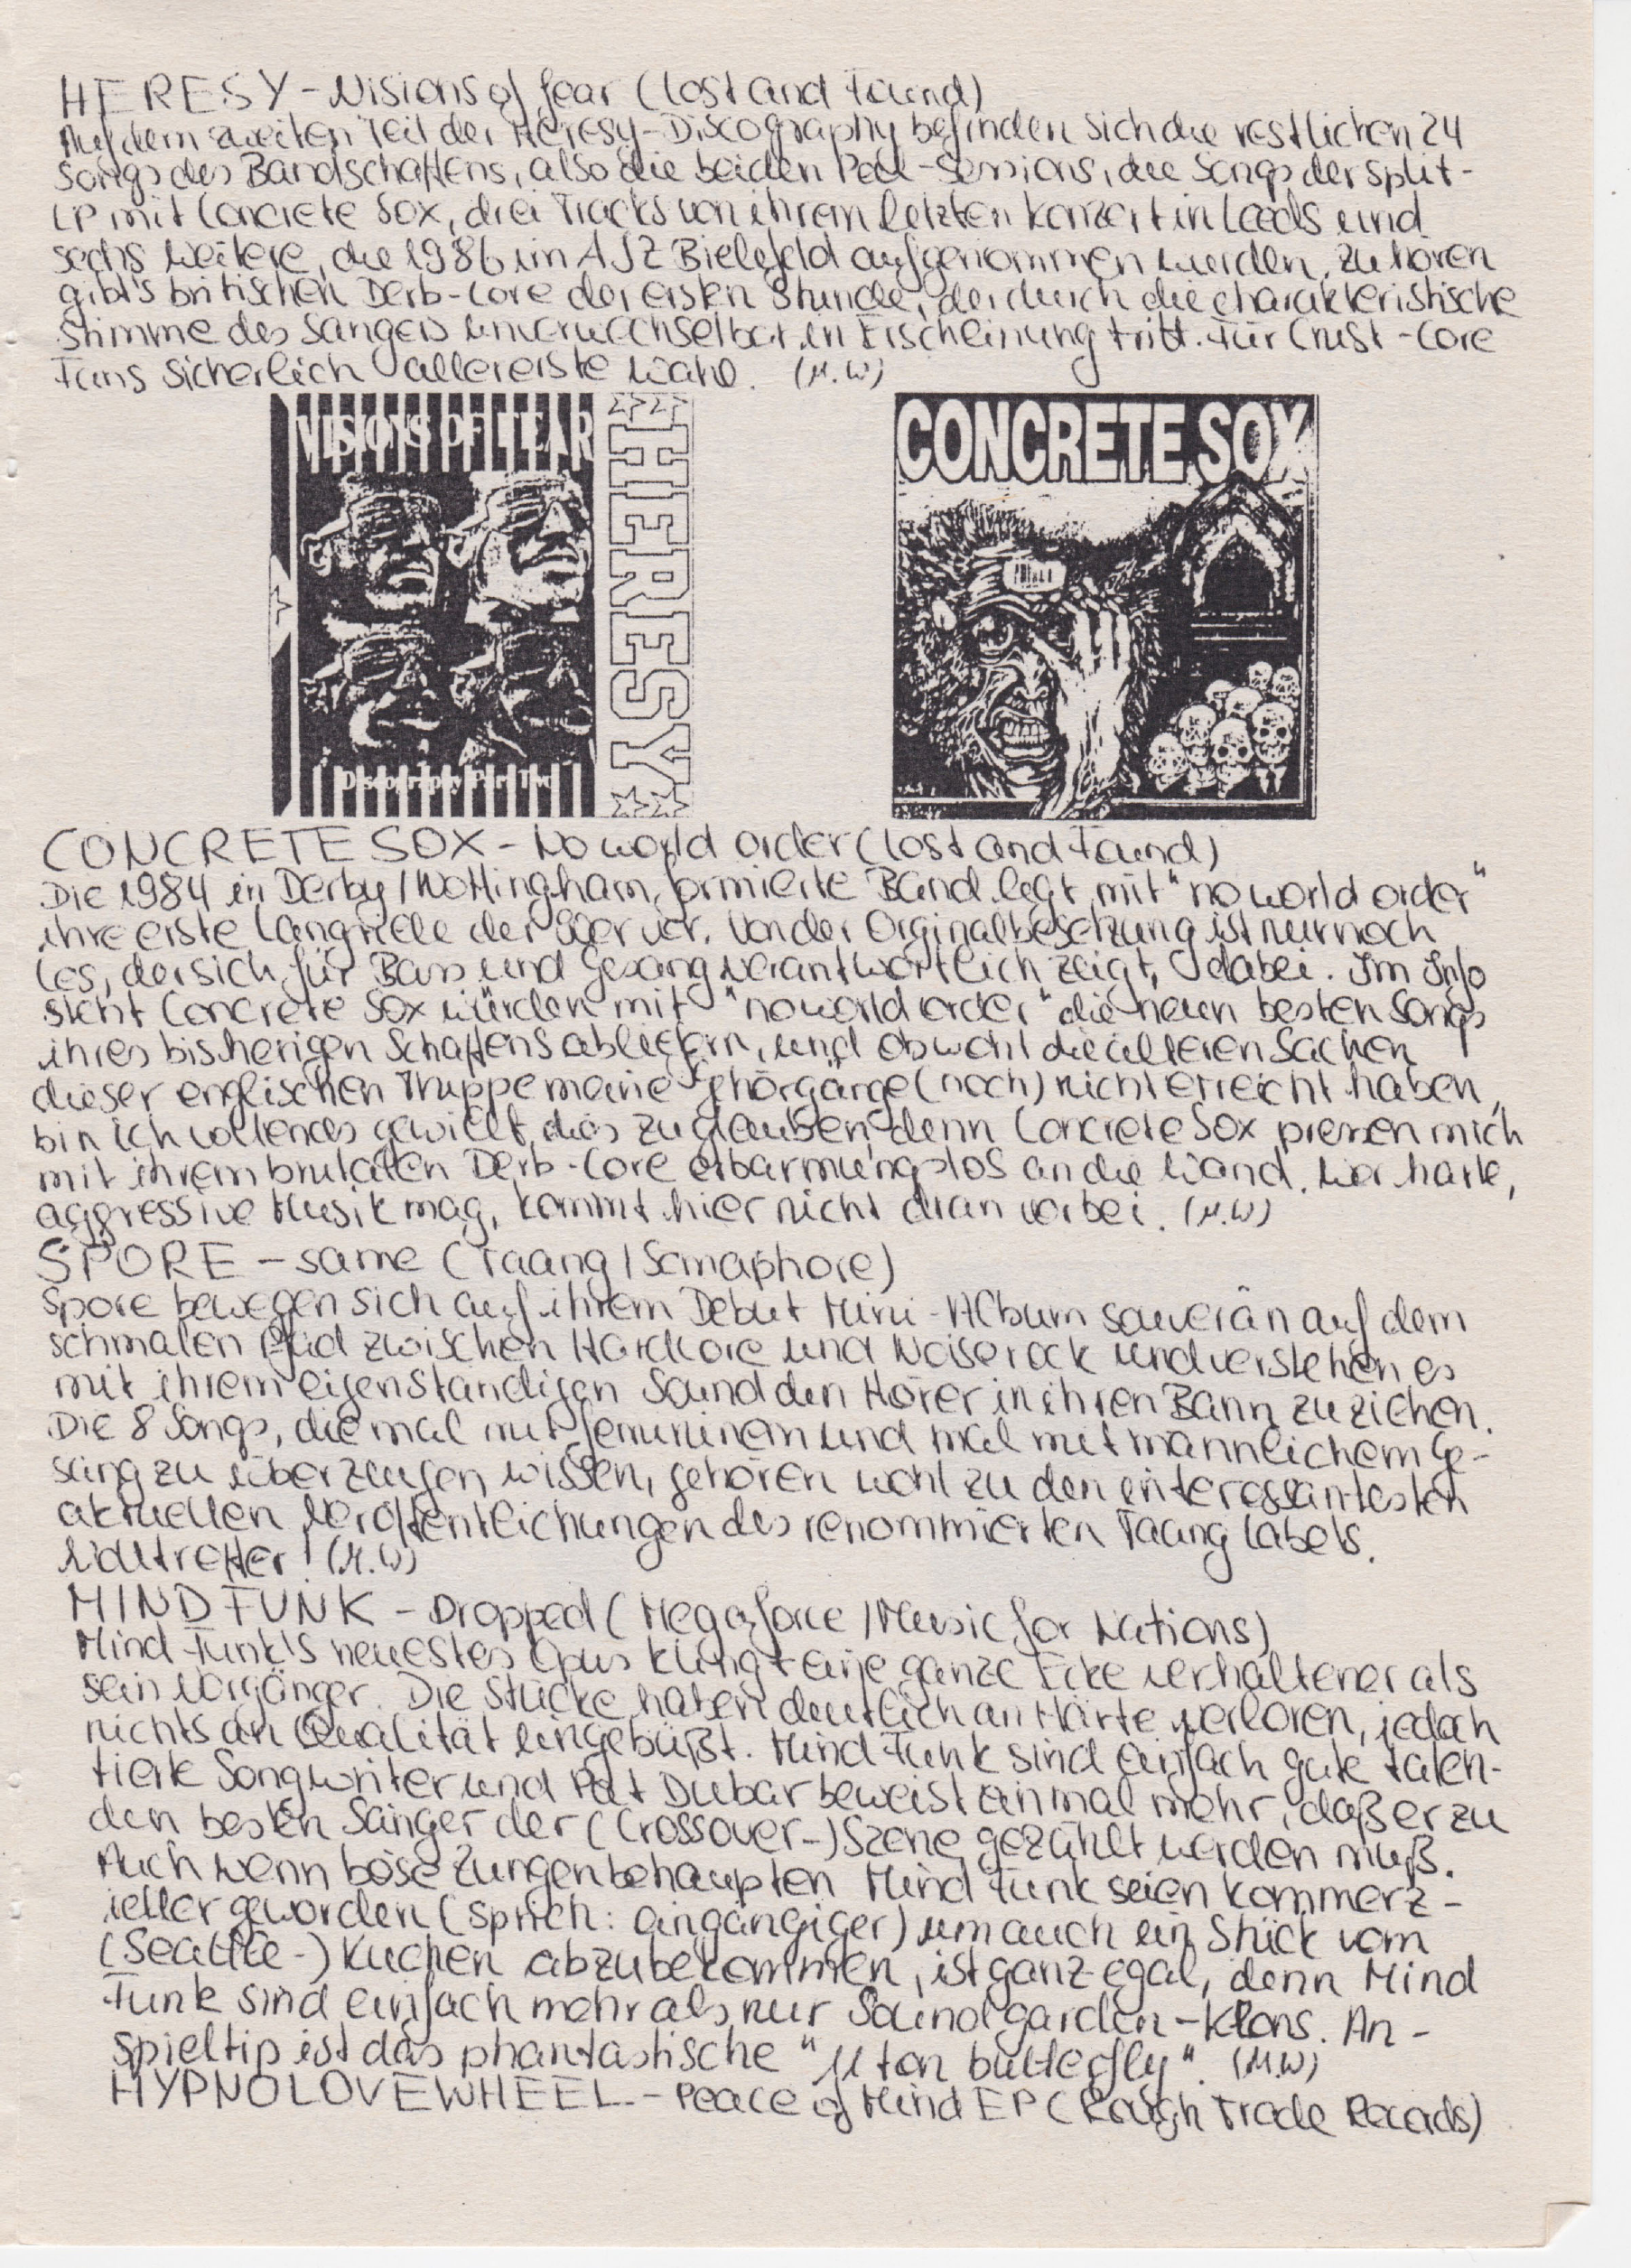 HERESY - Visions of fear (Lost and Found)
Auf dem zweiten Teil der Heresy-Discography befinden sich die restlichen 24
Songs des Bandschaffens, also die beiden Peel-Sessions, die Songs der Split-
LP mit Concrete Sox, drei Tracks von ihrem letzten Konzert in Leeds und
sechs weitere, die 1986 im AJZ Bielefeld aufgenommen wurden. Zu hören
gibt's britischen Derb-Core der ersten Stunde, der durch die charakteristische
Stimme des Sängers unverwechselbar in Erscheinung tritt. Für Crust-Core
Fans sicherlich allererste Wahl. (M.W)
VISIONS OF FEAR
HERESY
Discography Part Two
CONCRETE SOX
CONCRETE SOX - No world order (Lost and Found)
Die 1984 in Derby/Nottingham formierte Band legt mit "no world order"
ihre erste Langrille der 90er vor. Von der Orginalbesetzung ist nur noch
Les, der sich für Bass und Gesang verantwortlich zeigt, dabei. Im Info
steht Concrete Sox würden mit "no world order" die neun besten Songs
ihres bisherigen Schaffens abliefern, und obwohl die älteren Sachen
dieser englischen Truppe meine Gehörgänge (noch) nicht erreicht haben,
bin ich vollends gewillt dies zu glauben, denn Concrete Sox pressen mich
mit ihrem brutalen Derb-Core erbarmungslos an die Wand. Wer harte,
aggressive Musik mag, kommt hier nicht dran vorbei. (M.W)
SPORE - same (Taang/Semaphore)
Spore bewegen sich auf ihrem Debut Mini-Album souverän auf dem
schmalen Pfad zwischen Hardcore und Noiserock und verstehen es
mit ihrem eigenständigen Sound den Hörer in ihren Bann zu ziehen.
Die 8 Songs, die mal mit femininem und mal mit männlichem Ge-
sang zu überzeugen wissen, gehören wohl zu den interessantesten
aktuellen Veröffentlichungen des renommierten Taang Labels.
Volltreffer! (M.W)
MIND FUNK - Dropped (Megaforce/Music for Nations)
Mind Funk's neuestes Opus klingt eine ganze Ecke verhaltener als
sein Vorgänger. Die Stücke haben deutlich an Härte verloren, jedoch
nichts an Qualität eingebüßt. Mind Funk sind einfach gute talen-
tierte Songwriter und Pat Dubar beweist einmal mehr, daß er zu
den besten Sänger der (Crossover-) Szene gezählt werden muß.
Auch wenn böse Zungen behaupten Mind Funk seien kommerz-
ieller geworden (sprich: eingängiger) um auch ein Stück vom
(Seattle-) Kuchen abzubekommen, ist ganz egal, denn Mind
Funk sind einfach mehr als nur Soundgarden-Klons. An-
spieltip ist das phantastische " ton butterfly". (M.W)
HYPNOLOVEWHEEL - Peace of Mind EP (Rough Trade Records)